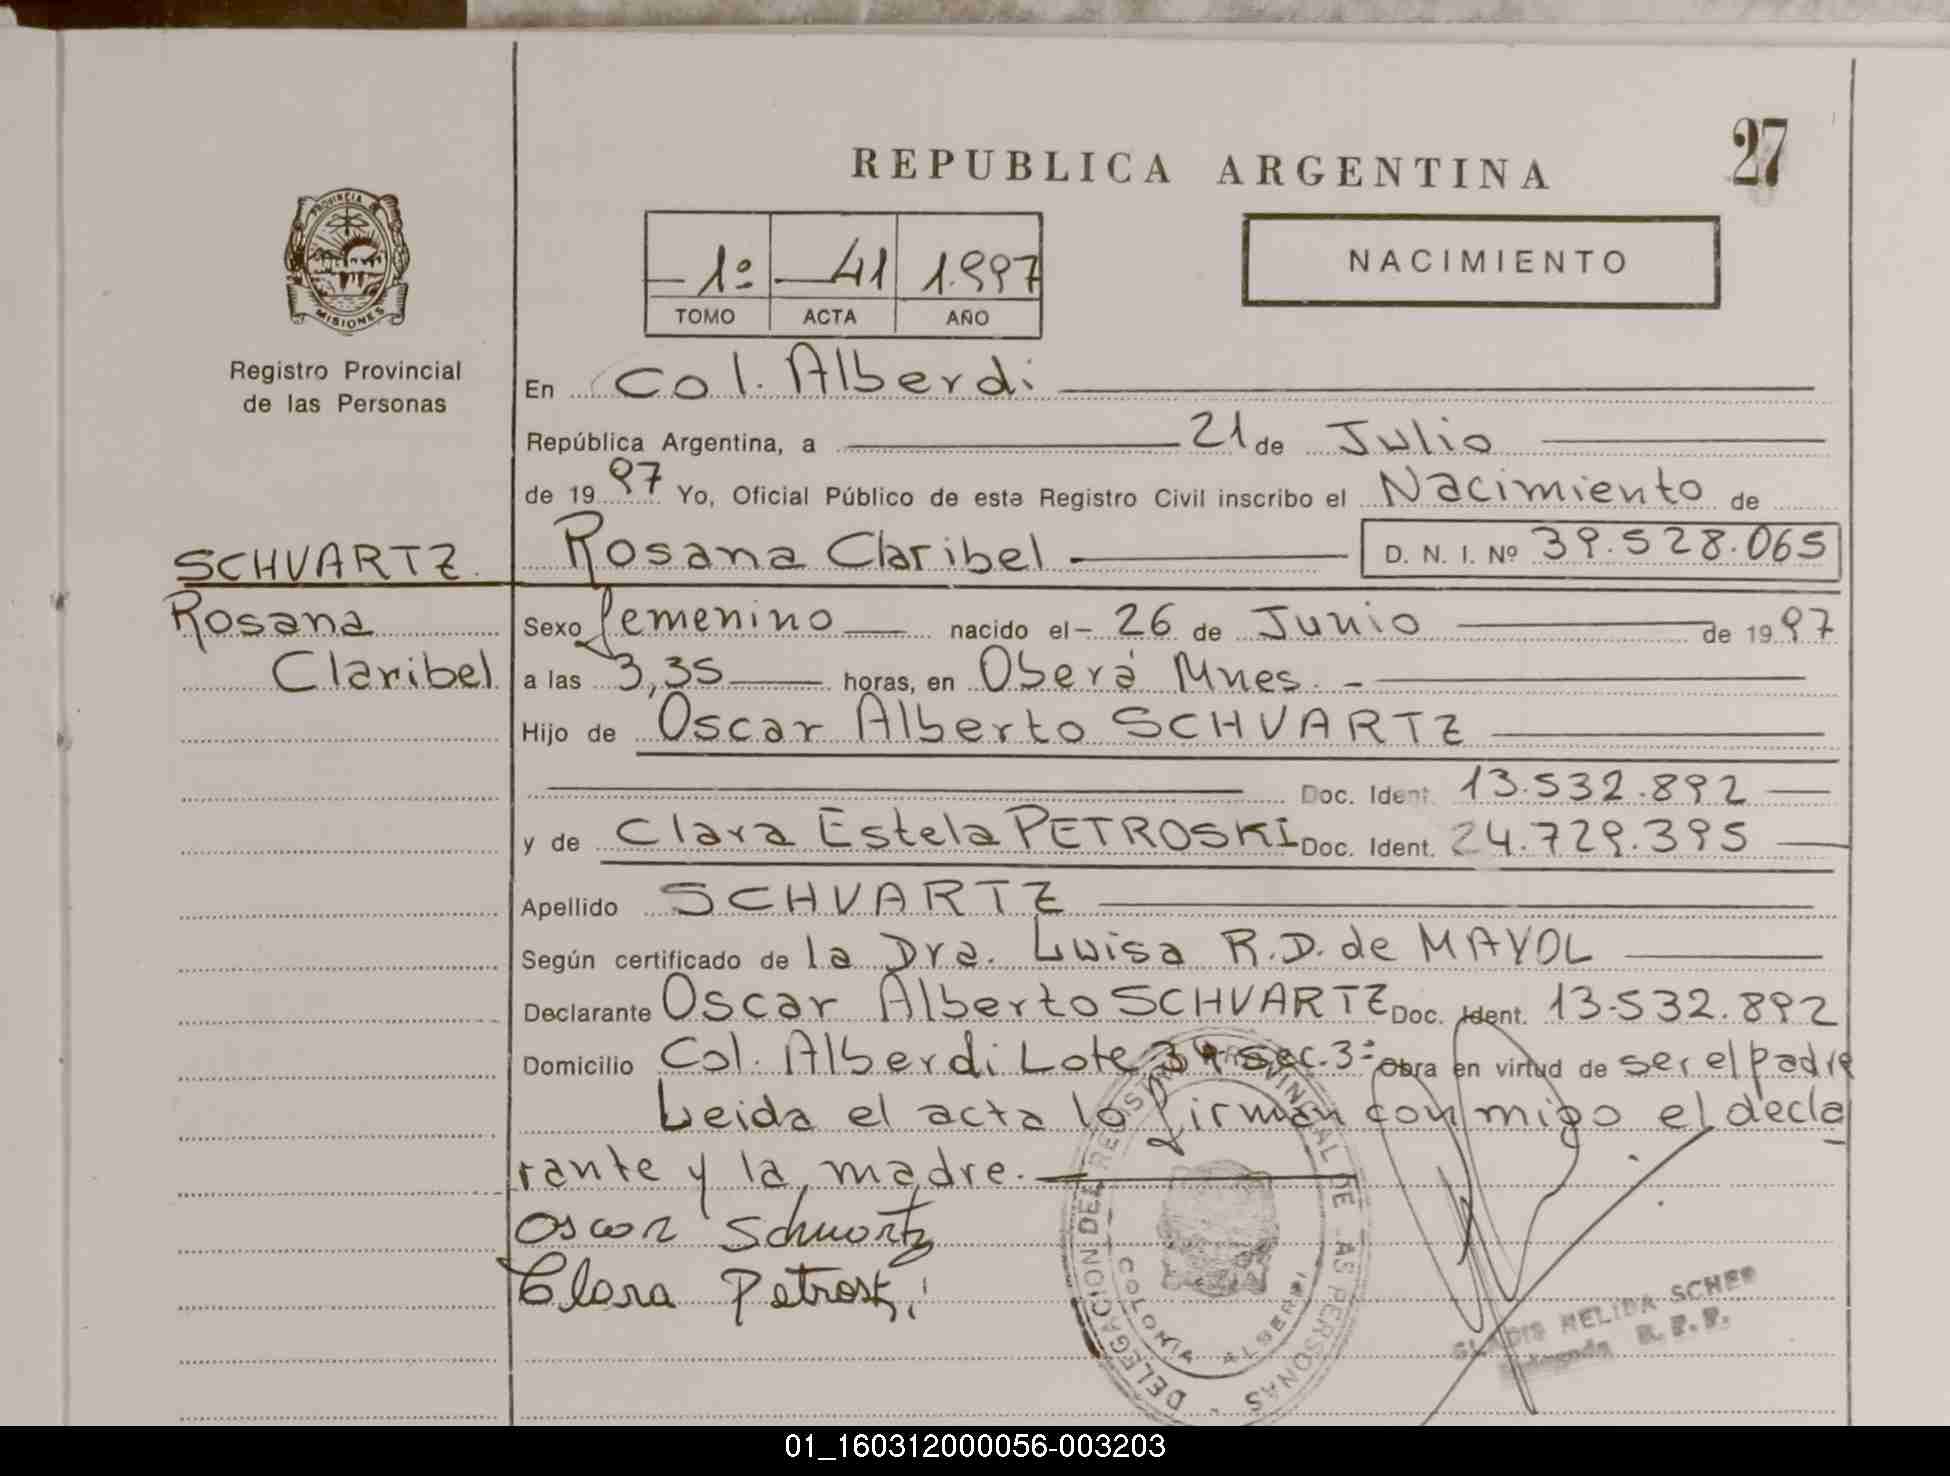 27
REPUBLICA ARGENTINA
PROVINCIA DE
MISIONES
Registro Provincial
de las Personas
1º 41 1.997
TOMO ACTA AÑO
NACIMIENTO
En Col. Alberdi
República Argentina, a 21 de Julio
de 1997 Yo, Oficial Público de este Registro Civil inscribo el Nacimiento de
SCHVARTZ. Rosana Claribel D. N. I. Nº 39.528.065
Rosana Sexo femenino nacido el 26 de Junio de 1997
Claribel a las 3,35 horas, en Oberá Mnes.
Hijo de Oscar Alberto SCHVARTZ
Doc. Ident. 13.532.892
y de Clara Estela PETROSKI Doc. Ident. 24.729.395
Apellido SCHVARTZ
Según certificado de la Dra. Luisa R.D. de MAYOL
Declarante Oscar Alberto SCHVARTZ Doc. Ident. 13.532.892
Domicilio Col. Alberdi Lote sec. 3ª Obra en virtud de ser el padre
Leida el acta lo firman conmigo el decla
rante y la madre.
Oscar Schwartz
Clara Petroski
DELEGACION DEL REGISTRO PROVINCIAL DE LAS PERSONAS
COLONIA ALBERDI
GLADIS NELIDA SCHER
Delegada R. P. P.
01_160312000056-003203